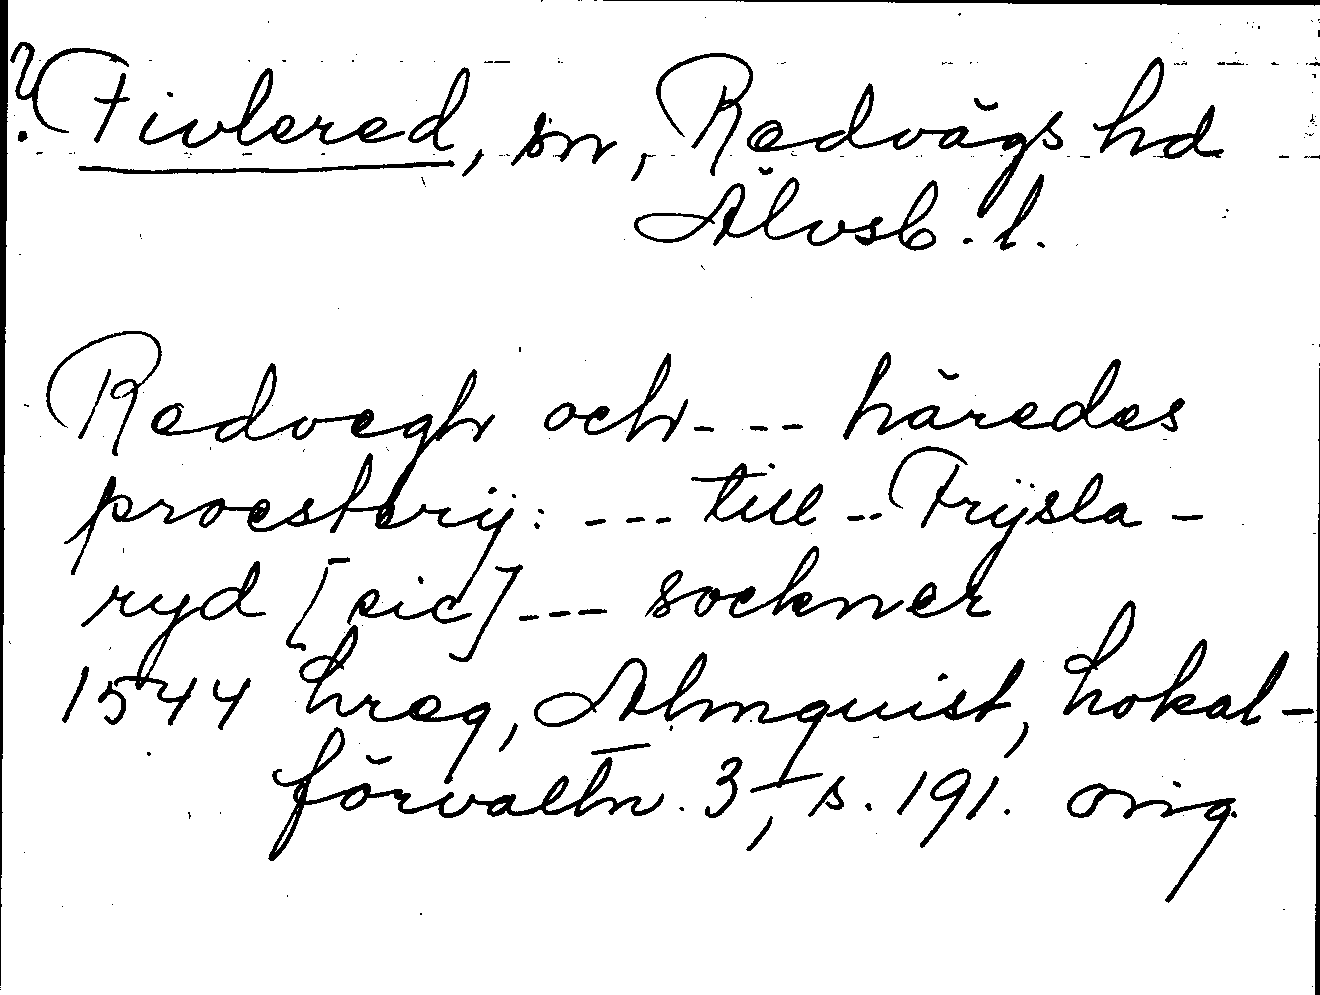 ? Fivlered, sn, Redvägs hd
Älvsb. l.
Redvegh och --- häredes
proesterij: --- till -- Frijsla-
ryd [sic] --- sockner
1544 hreg, Almquist, Lokal-
förvaltn. 3, s. 191. orig.